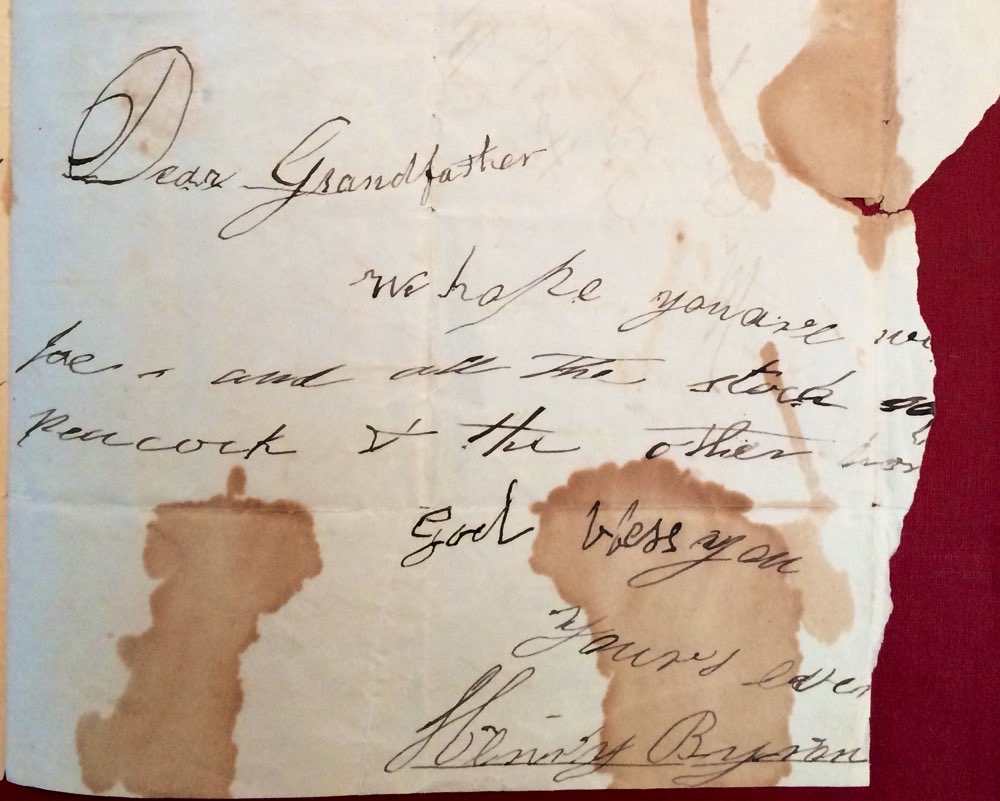 Dear Grandfather
we hope you are
Joe - and all the stock
Peacock & the other
God bless you
Yours ever
Henry Byron